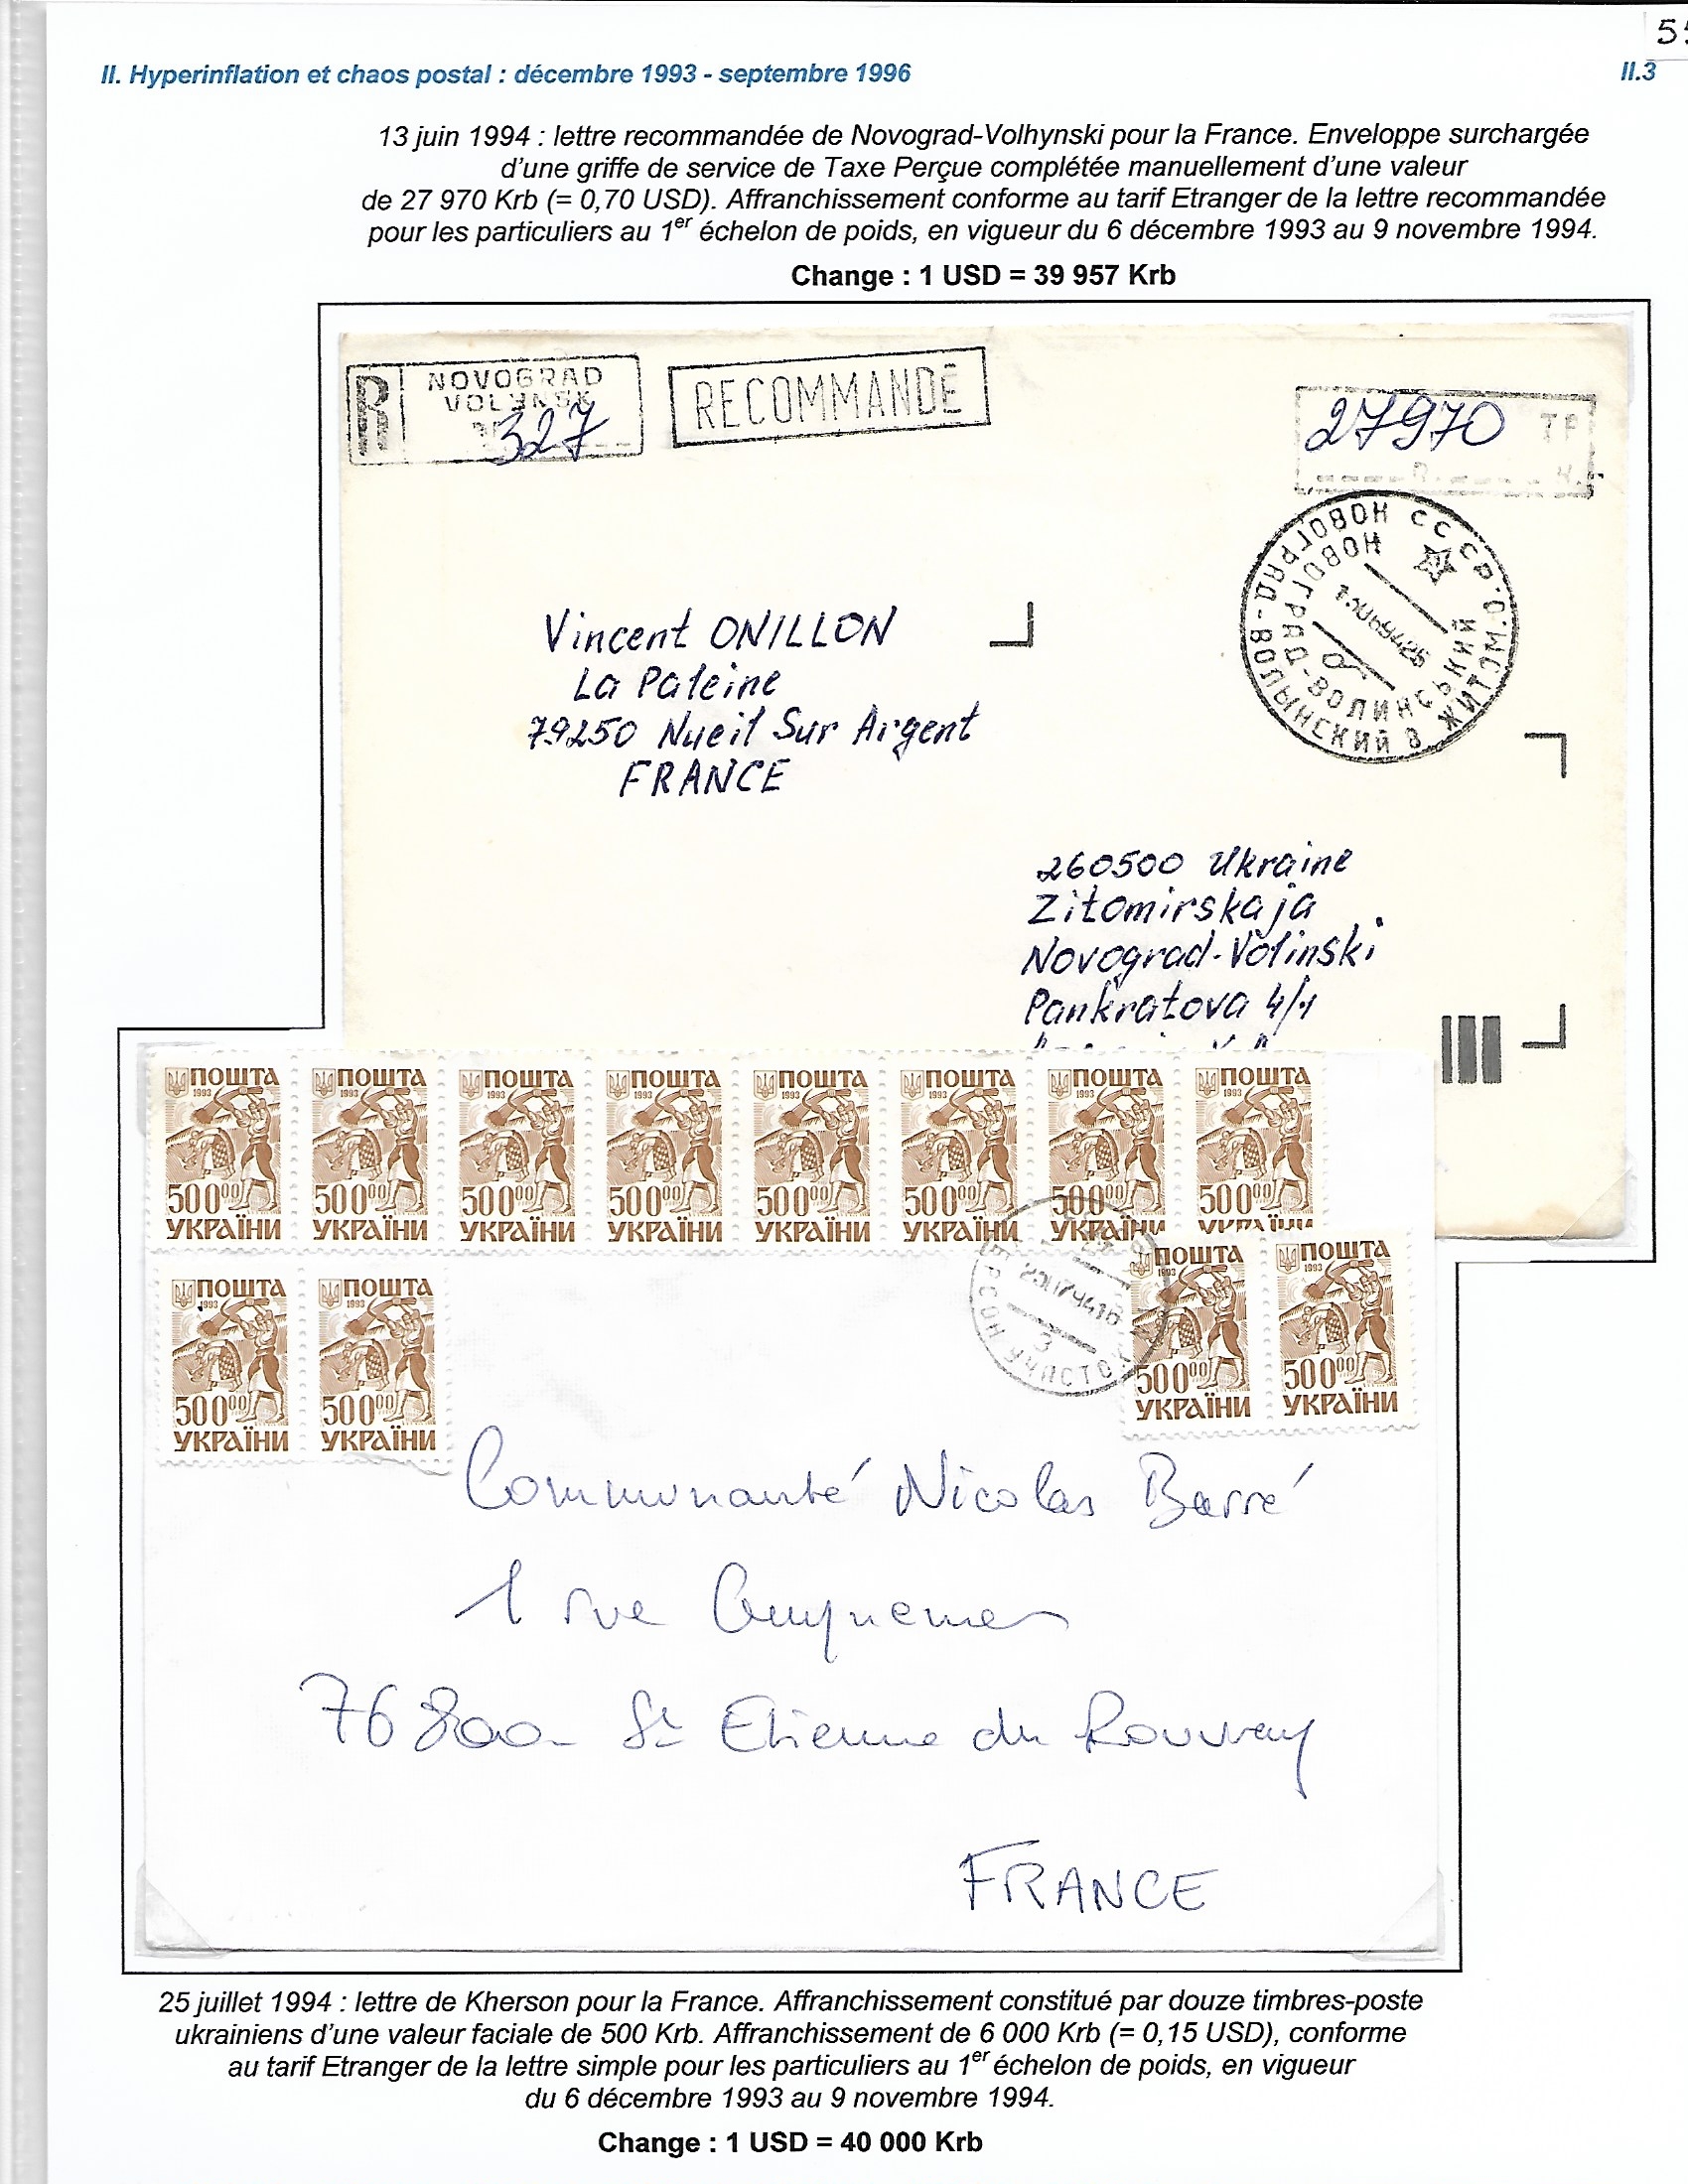 55
II. Hyperinflation et chaos postal : décembre 1993 - septembre 1996
II.3
13 juin 1994 : lettre recommandée de Novograd-Volhynski pour la France. Enveloppe surchargée
d’une griffe de service de Taxe Perçue complétée manuellement d’une valeur
de 27 970 Krb (= 0,70 USD). Affranchissement conforme au tarif Etranger de la lettre recommandée
pour les particuliers au 1er échelon de poids, en vigueur du 6 décembre 1993 au 9 novembre 1994.
Change : 1 USD = 39 957 Krb
R
NOVOGRAD
VOLYNSK
327
RECOMMANDE
27970 TP
СССР
НОВОГРАД-ВОЛЫНСКИЙ 8 ЖИТОМ.О.
НОВОГРАД-ВОЛИНСЬКИЙ
Vincent ONILLON
La Paleine
79250 Nueil Sur Argent
FRANCE
260500 Ukraine
Zitomirskaja
Novograd-Volinski
Pankratova 4/1
ПОШТА ПОШТА ПОШТА ПОШТА ПОШТА ПОШТА ПОШТА ПОШТА
1993 1993 1993 1993 1993 1993 1993 1993
50000 50000 50000 50000 50000 50000 50000 50000
УКРАЇНИ УКРАЇНИ УКРАЇНИ УКРАЇНИ УКРАЇНИ УКРАЇНИ УКРАЇНИ УКРАЇНИ
ПОШТА ПОШТА ПОШТА ПОШТА
1993 1993 1993 1993
50000 50000 50000 50000
УКРАЇНИ УКРАЇНИ УКРАЇНИ УКРАЇНИ
Communauté Nicolas Barré
1 rue Guynemer
76800 St Etienne du Rouvray
FRANCE
25 juillet 1994 : lettre de Kherson pour la France. Affranchissement constitué par douze timbres-poste
ukrainiens d’une valeur faciale de 500 Krb. Affranchissement de 6 000 Krb (= 0,15 USD), conforme
au tarif Etranger de la lettre simple pour les particuliers au 1er échelon de poids, en vigueur
du 6 décembre 1993 au 9 novembre 1994.
Change : 1 USD = 40 000 Krb